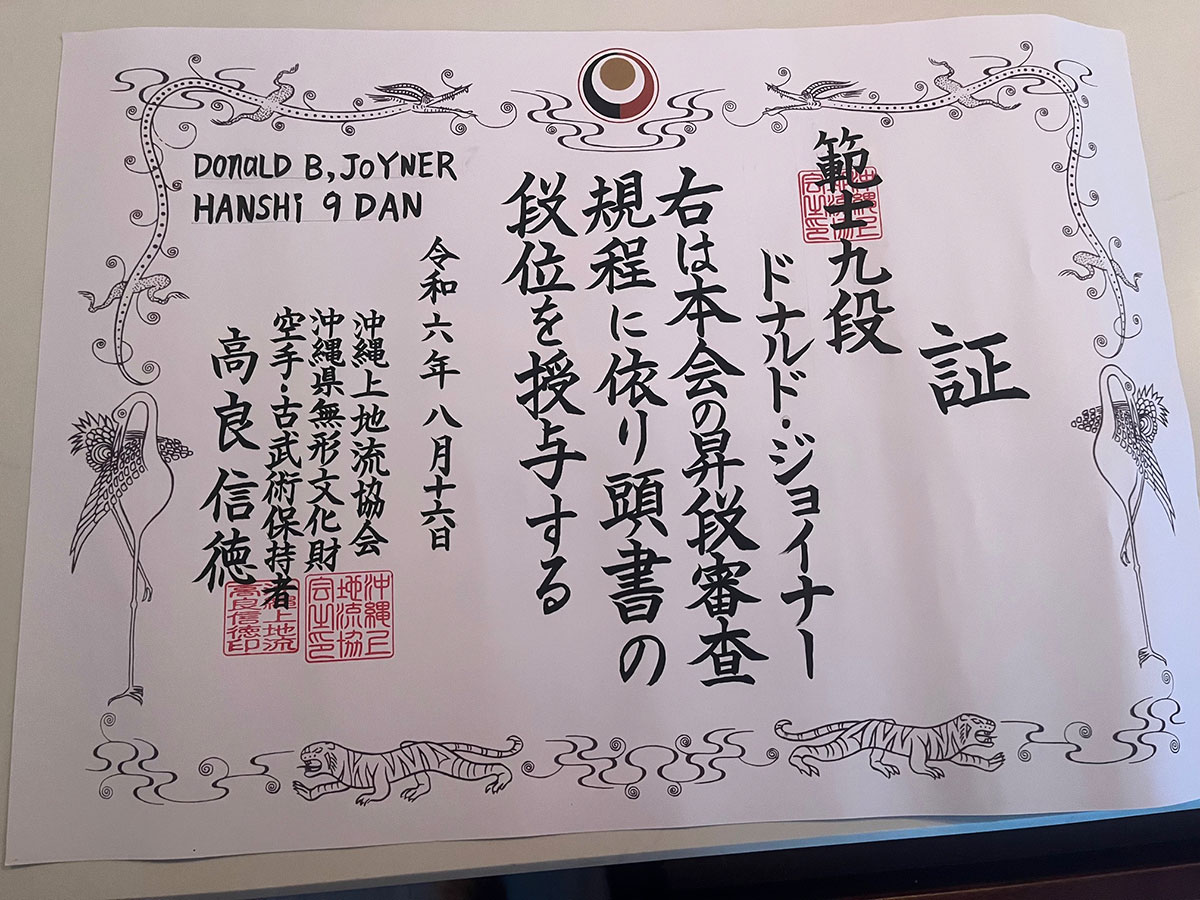 証
範士九段
ドナルド・ジョイナー
右は本会の昇段審査
規程に依り頭書の
段位を授与する
令和六年八月十六日
沖縄上地流協会
沖縄県無形文化財
空手・古武術保持者
高良信徳
DONALD B, JOYNER
HANSHi 9 DAN
沖縄上
地流協
会土印
沖縄上地流
高良信徳印